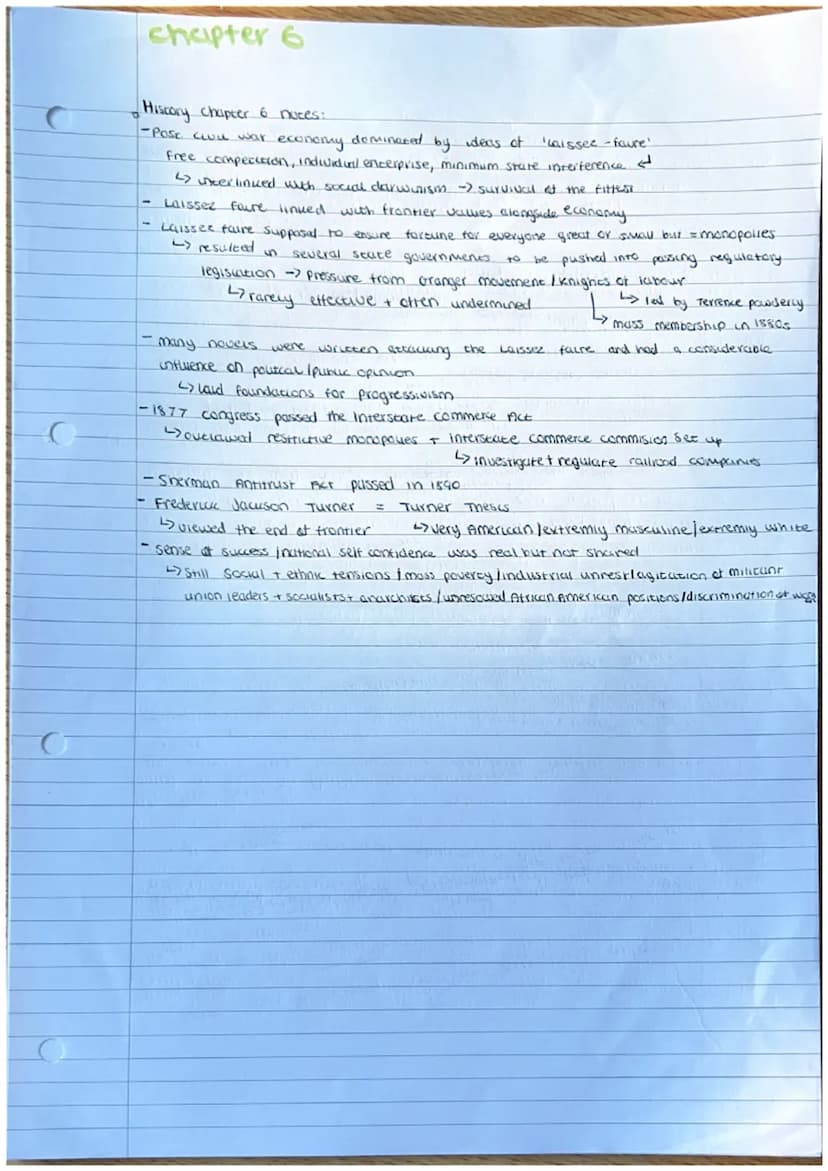 chapter 6
History chapter 6 notes:
- Post civil war economy dominated by ideas of 'laissez-faire'
Free competition, individual enterprise, minimum state interference ↵
↳ interlinked with social darwinism → survival of the fittest
- Laissez faire linked with frontier values alongside economy
- Laissez faire supposed to ensure fortune for everyone great or small but = monopolies
↳ resulted in several state governments to be pushed into passing regulatory
legislation → pressure from Granger movement / knights of labour
↳ rarely effective + often undermined ↳ led by Terrence powderly
↳ mass membership in 1880s
- many novels were written attacking the Laissez faire and had a considerable
influence on political / public opinion
↳ laid foundations for progressivism
- 1877 congress passed the Interstate commerce Act
↳ outlawed restrictive monopolies + interstate commerce commision set up
↳ investigate + regulate railroad companies
- Sherman Antitrust Act passed in 1890
- Frederick Jackson Turner = Turner Thesis
↳ viewed the end of frontier ↳ very American / extremly masculine / extremly white
- sense of success / national self confidence was real but not shared
↳ still social + ethnic tensions / mass poverty / industrial unrest / agitation of militant
union leaders + socialists + anarchists / unresolved African American positions / discrimination of